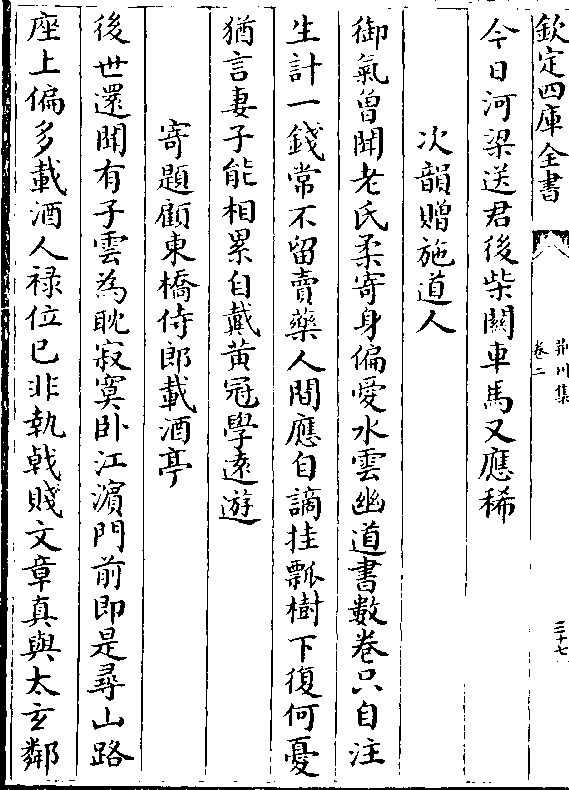 欽定四庫全書
荊川集
卷二
三十七
今日河梁送君後柴闗車馬又應稀
次韻贈施道人
御氣曾聞老氏柔寄身偏愛水雲幽道書數卷只自注
生計一錢常不留賣藥人間應自謫挂瓢樹下復何憂
猶言妻子能相累自戴黃冠學遠遊
寄題顧東橋侍郎載酒亭
後世還聞有子雲為耽寂寞卧江濵門前即是尋山路
座上偏多載酒人禄位已非執戟賤文章真與太玄鄰